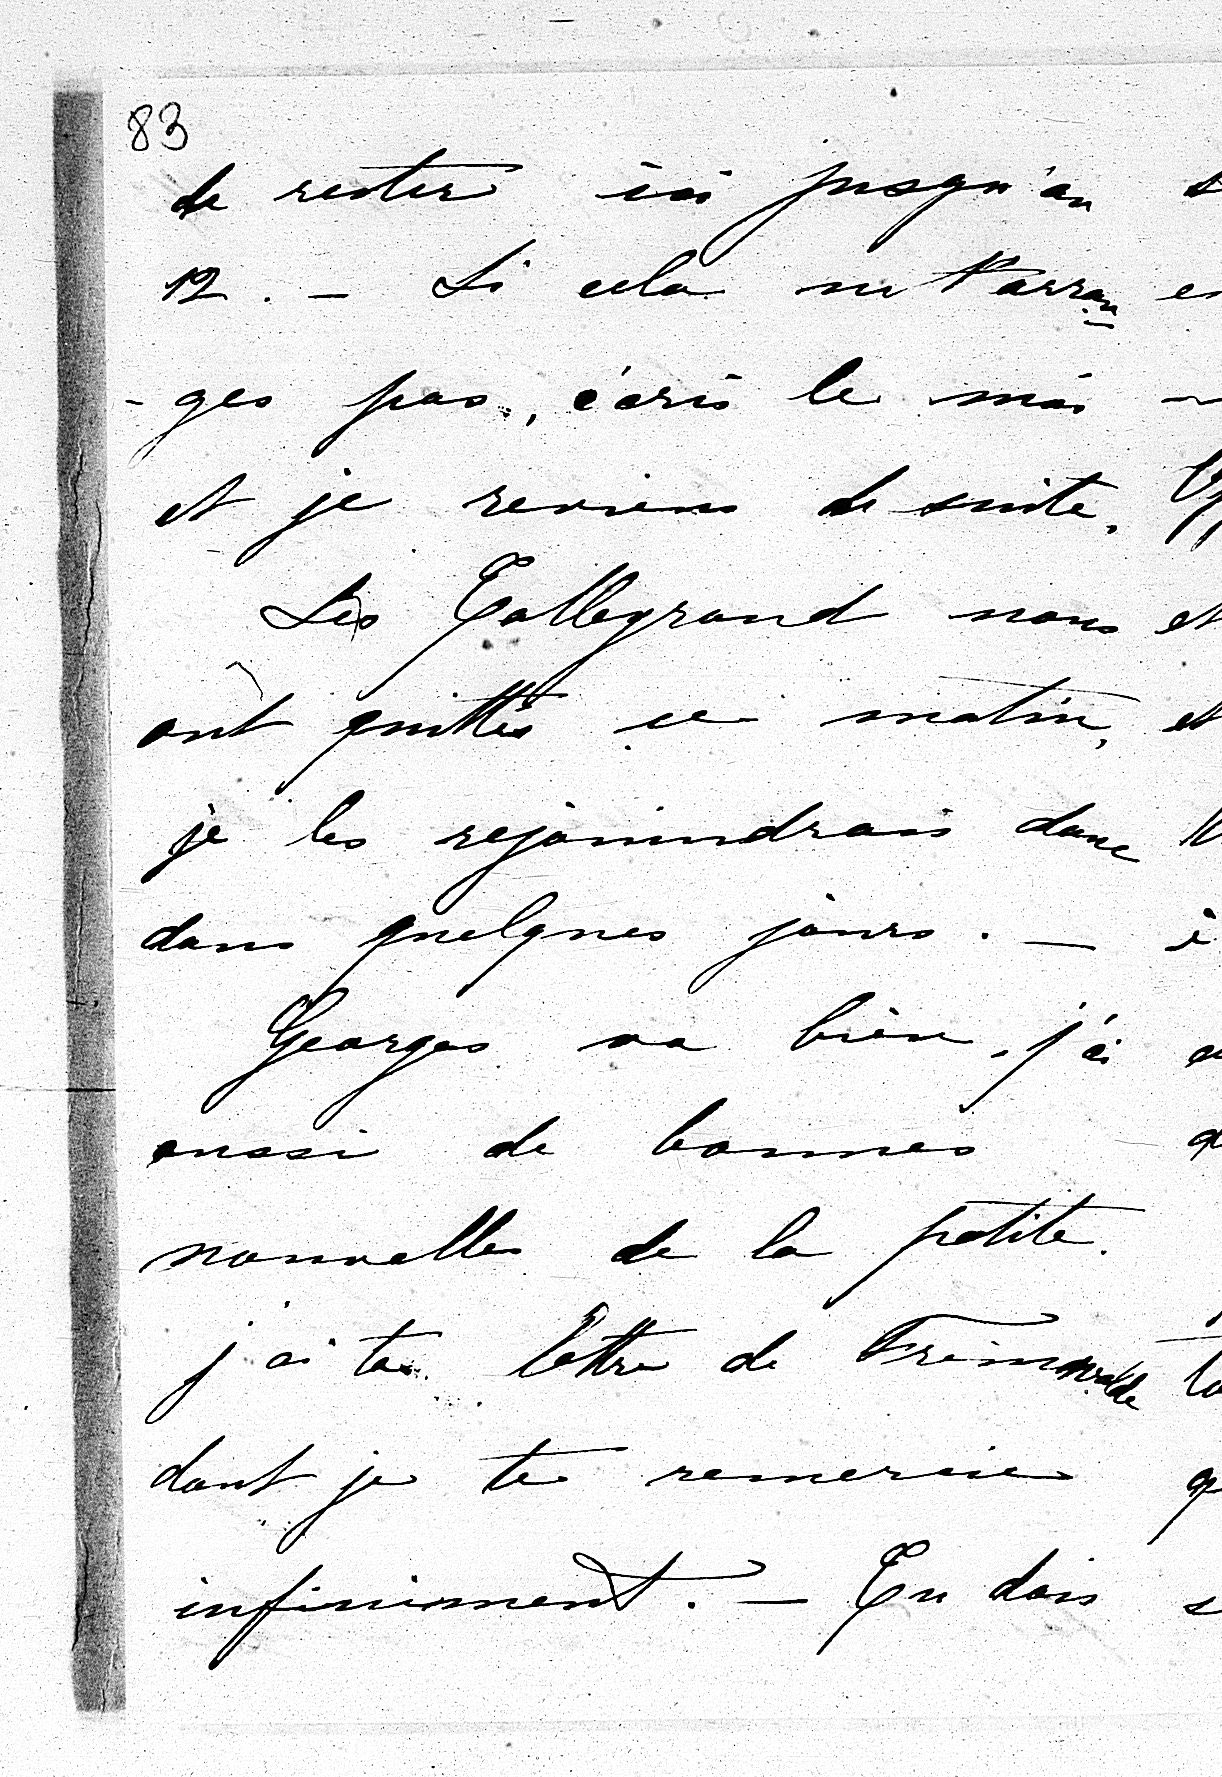 83
de rester ici jusqu'au
12. — Si cela ne t'arran
-ges pas, écris le moi
et je reviens de suite.
Les Tattegrand nous
ont quittés ce matin, et
je les rejoindrais donc
dans quelques jours. —
Georges va bien, j'ai
aussi de bonnes
nouvelles de la petite.
j'ai ta lettre de
dont je te remercie
infiniment. — Tu dois